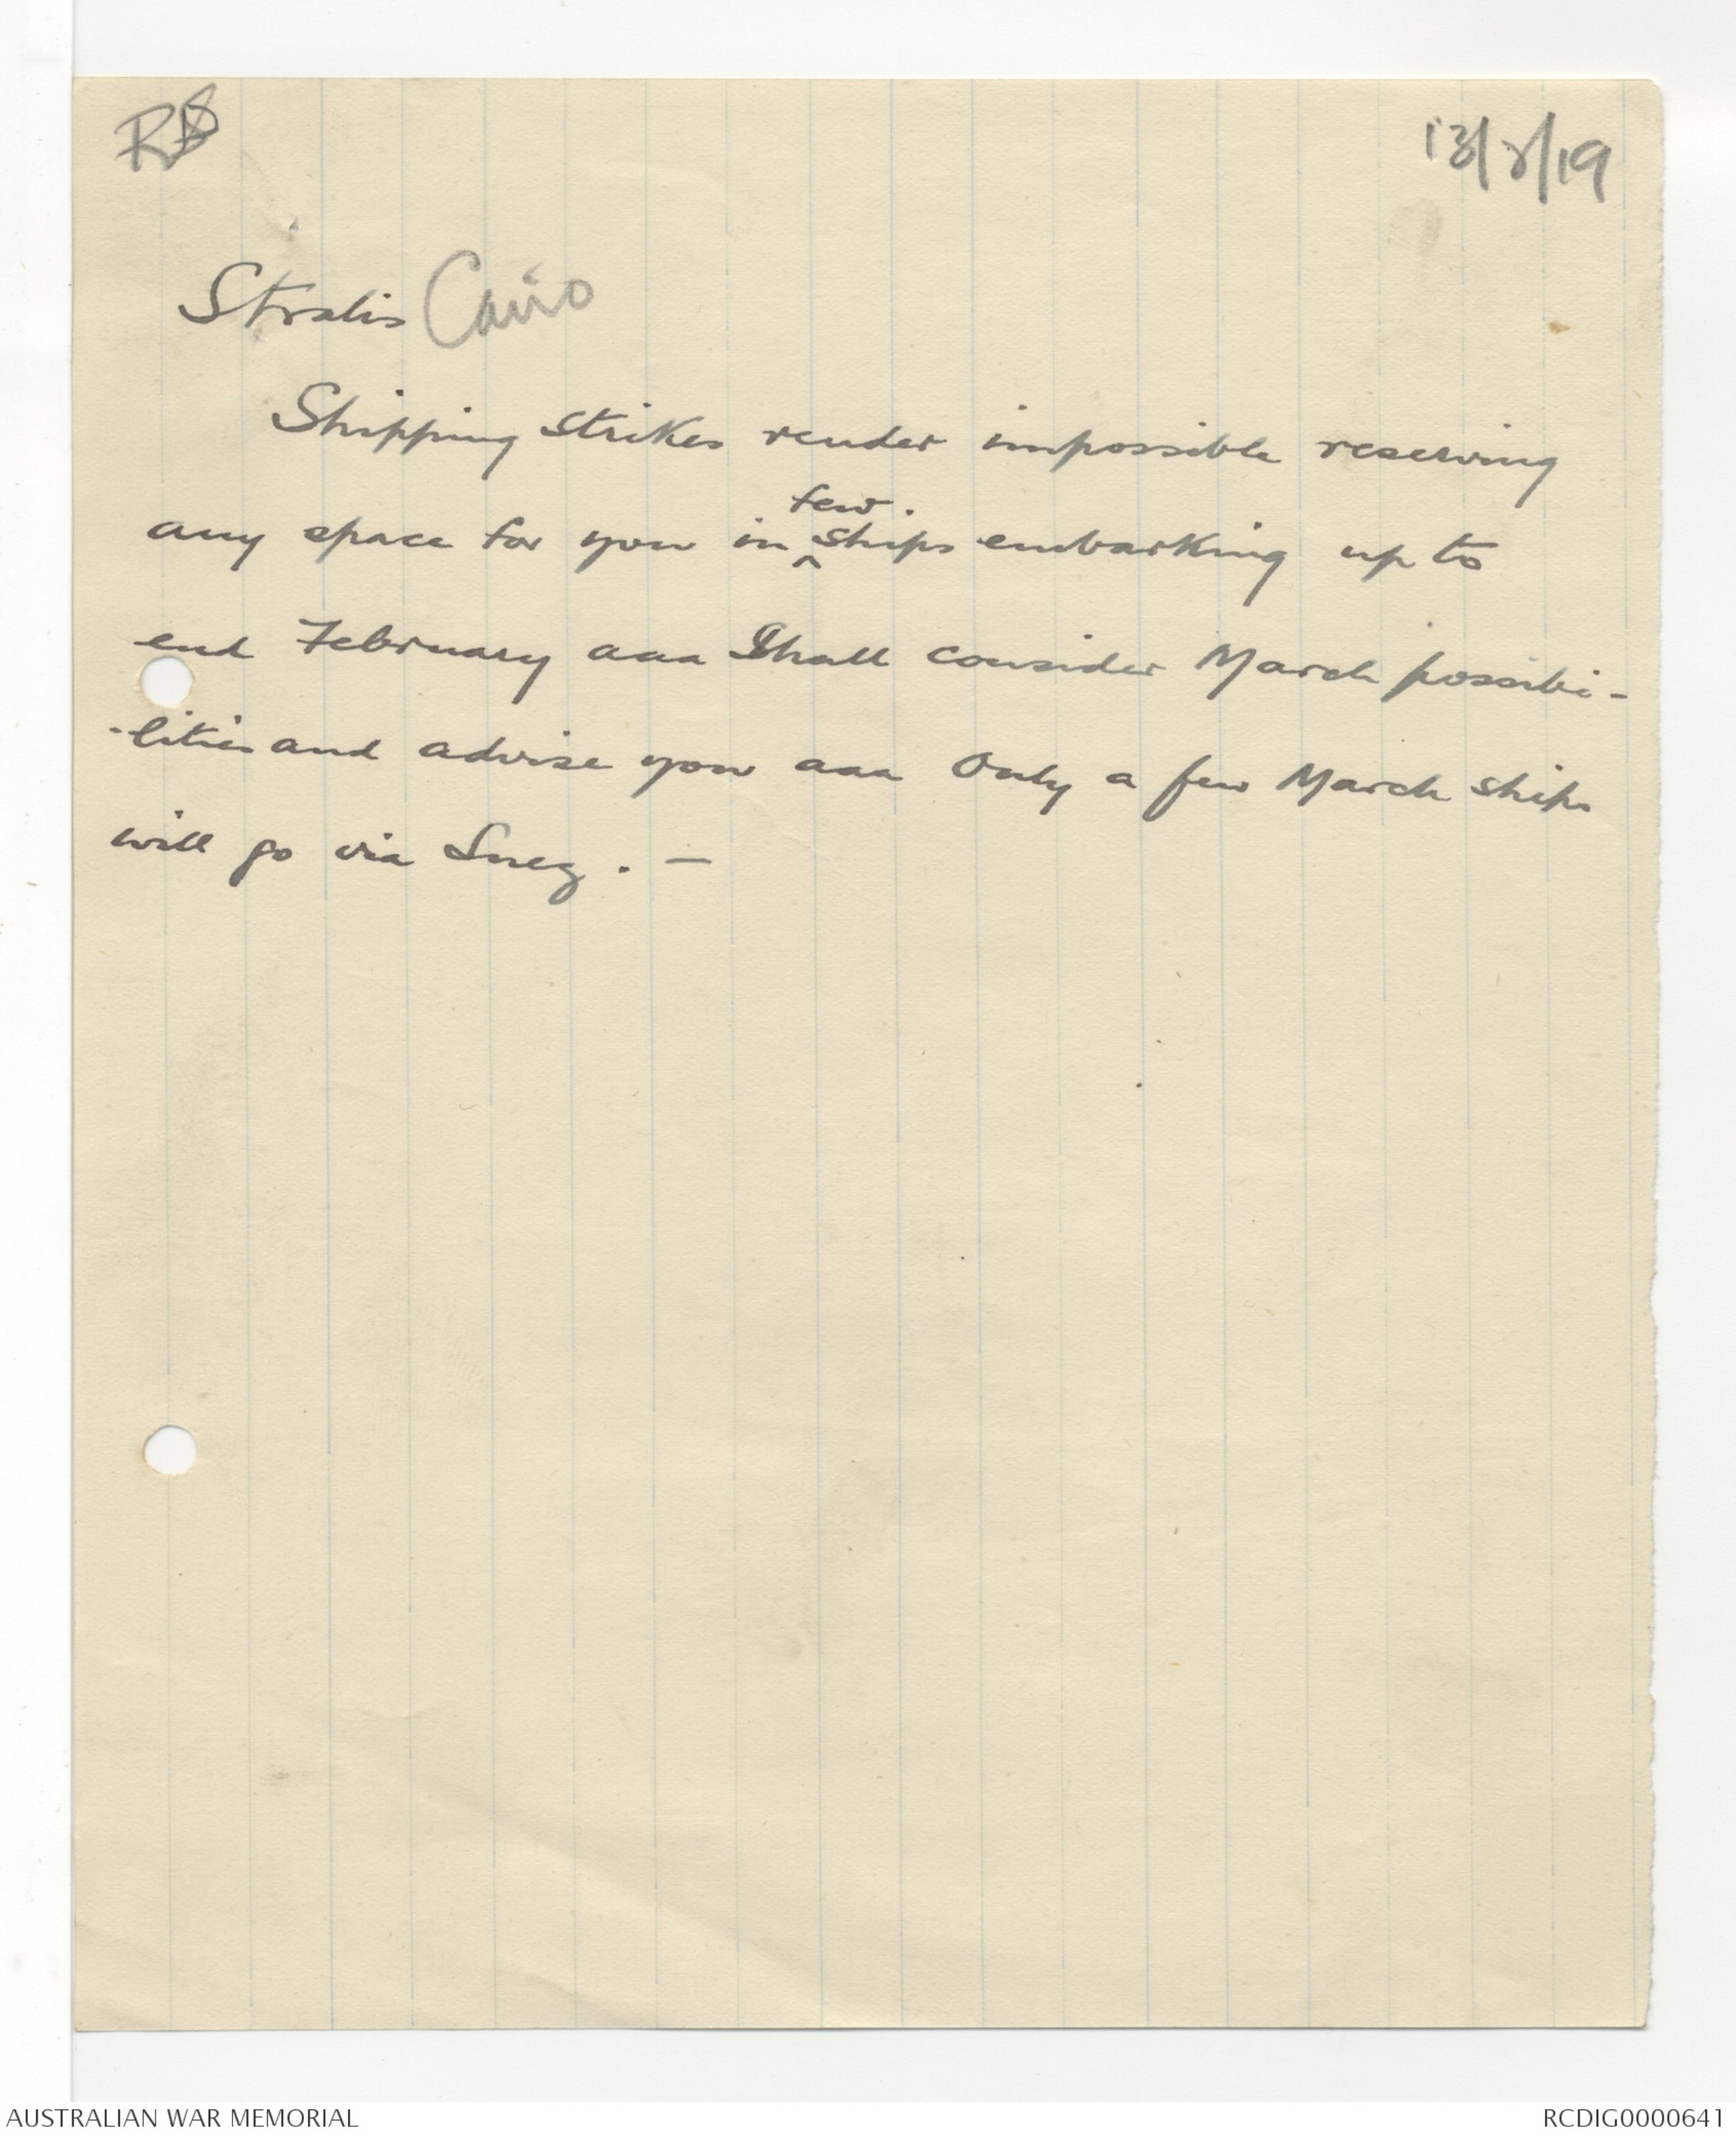 13/2/19
Stralis Cairo
Shipping strikes render impossible reserving
few.
any space for you in ^ ships embarking up to
end February aaa Shall consider March possibi-
-lities and advise you aaa Only a few March ships
will go via Suez. —
AUSTRALIAN WAR MEMORIAL
RCDIG0000641